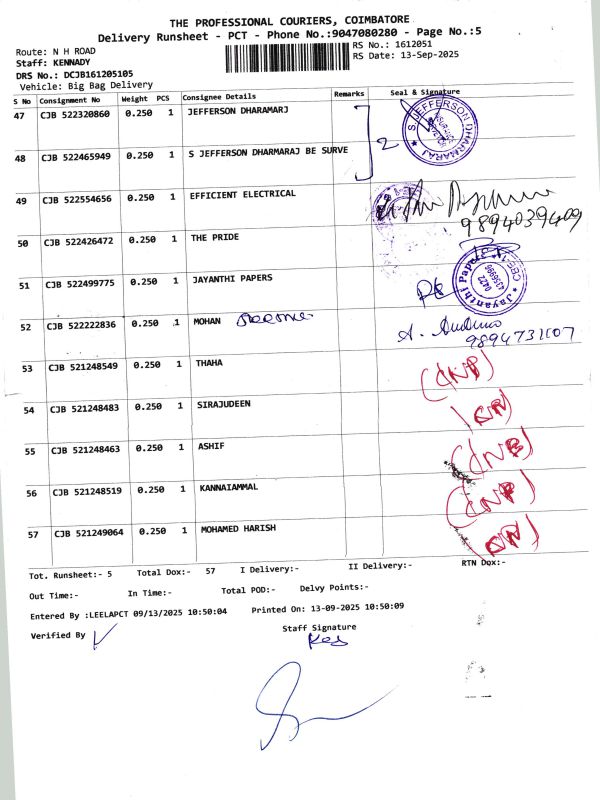 THE PROFESSIONAL COURIERS, COIMBATORE
Delivery Runsheet - PCT - Phone No.:9047080280 - Page No.:5
Route: N H ROAD
RS No.: 1612051
Staff: KENNADY
RS Date: 13-Sep-2025
DRS No.: DCJB161205105
Vehicle: Big Bag Delivery
S No Consignment No Weight PCS Consignee Details Remarks Seal & Signature
47 CJB 522320860 0.250 1 JEFFERSON DHARAMARJ
48 CJB 522465949 0.250 1 S JEFFERSON DHARMARAJ BE SURVE 2
S JEFFERSON DHARMARAJ
49 CJB 522554656 0.250 1 EFFICIENT ELECTRICAL
9894039409
50 CJB 522426472 0.250 1 THE PRIDE
51 CJB 522499775 0.250 1 JAYANTHI PAPERS
Jayanthi Papers
CBE-1
0422
4356996
52 CJB 522222836 0.250 1 MOHAN
9894731107
53 CJB 521248549 0.250 1 THAHA
54 CJB 521248483 0.250 1 SIRAJUDEEN
55 CJB 521248463 0.250 1 ASHIF
56 CJB 521248519 0.250 1 KANNAIAMMAL
57 CJB 521249064 0.250 1 MOHAMED HARISH
Tot. Runsheet:- 5 Total Dox:- 57 I Delivery:- II Delivery:- RTN Dox:-
Out Time:- In Time:- Total POD:- Delvy Points:-
Entered By :LEELAPCT 09/13/2025 10:50:04 Printed On: 13-09-2025 10:50:09
Verified By
Staff Signature